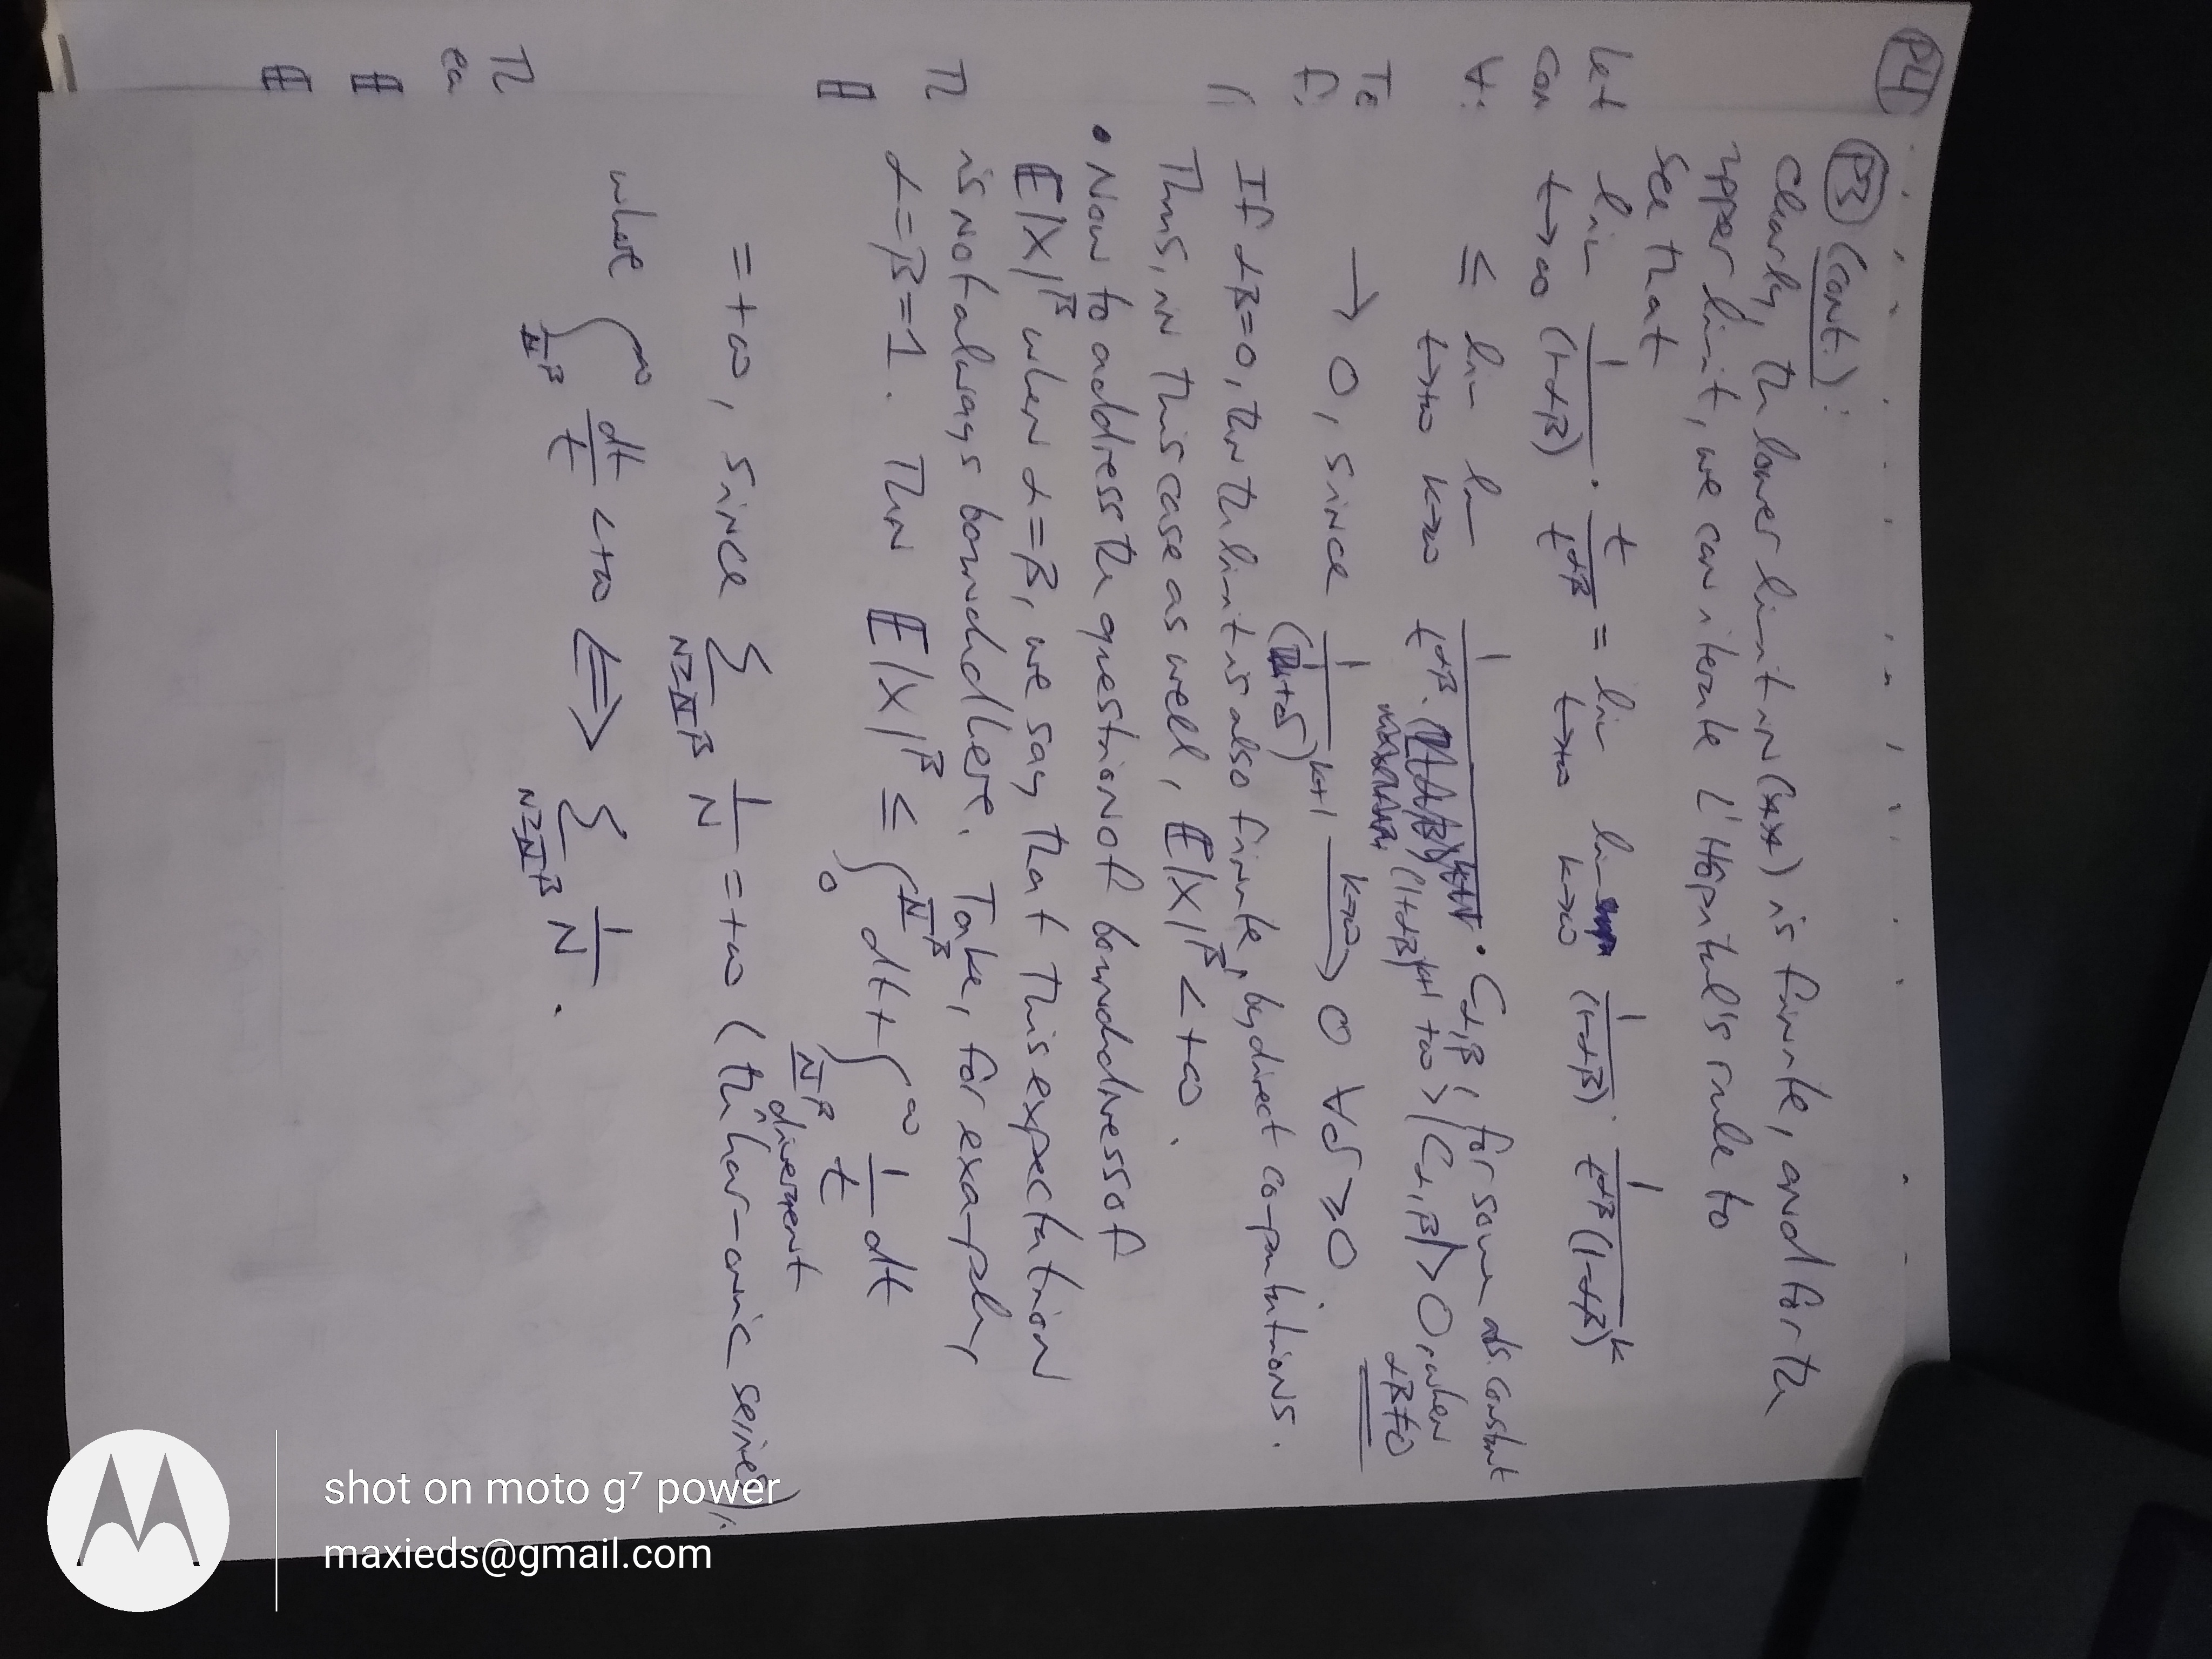 P4
P3 (cont.):
Clearly, the lower limit in (**) is finite, and for the
upper limit, we can iterate L'Hôpital's rule to
see that
lim t→∞ 1/(1-αβ) · t/t^{αβ} = lim t→+∞ lim k→∞ 1/(1-αβ) · 1/(t^{αβ}(1-αβ)^k)
≤ lim t→+∞ lim k→∞ 1/(t^{αβ} · (1+αβ)^{k+1}) · C_{α,β}, for some abs. constant
+∞ > |C_{α,β}| > 0, when αβ≠0
→ 0, since 1/(1+δ)^{k+1} →^{k→∞} 0 ∀δ>0
If αβ=0, then the limit is also finite, by direct computations.
Thus, in this case as well, E|X|^β < +∞.
• Now to address the question of boundedness of
E|X|^β when α=β, we say that this expectation
is not always bounded here. Take, for example,
α=β=1. Then E|X|^β ≤ ∫_0^{N^β} dt + ∫_{N^β}^∞ 1/t dt
= +∞, since Σ_{N≥N^β} 1/N = +∞ (the divergent harmonic series),
where ∫_{N^β}^∞ dt/t < +∞ ⟺ Σ_{N≥N^β} 1/N.
let
con
∀:
Te
shot on moto g⁷ power
maxieds@gmail.com